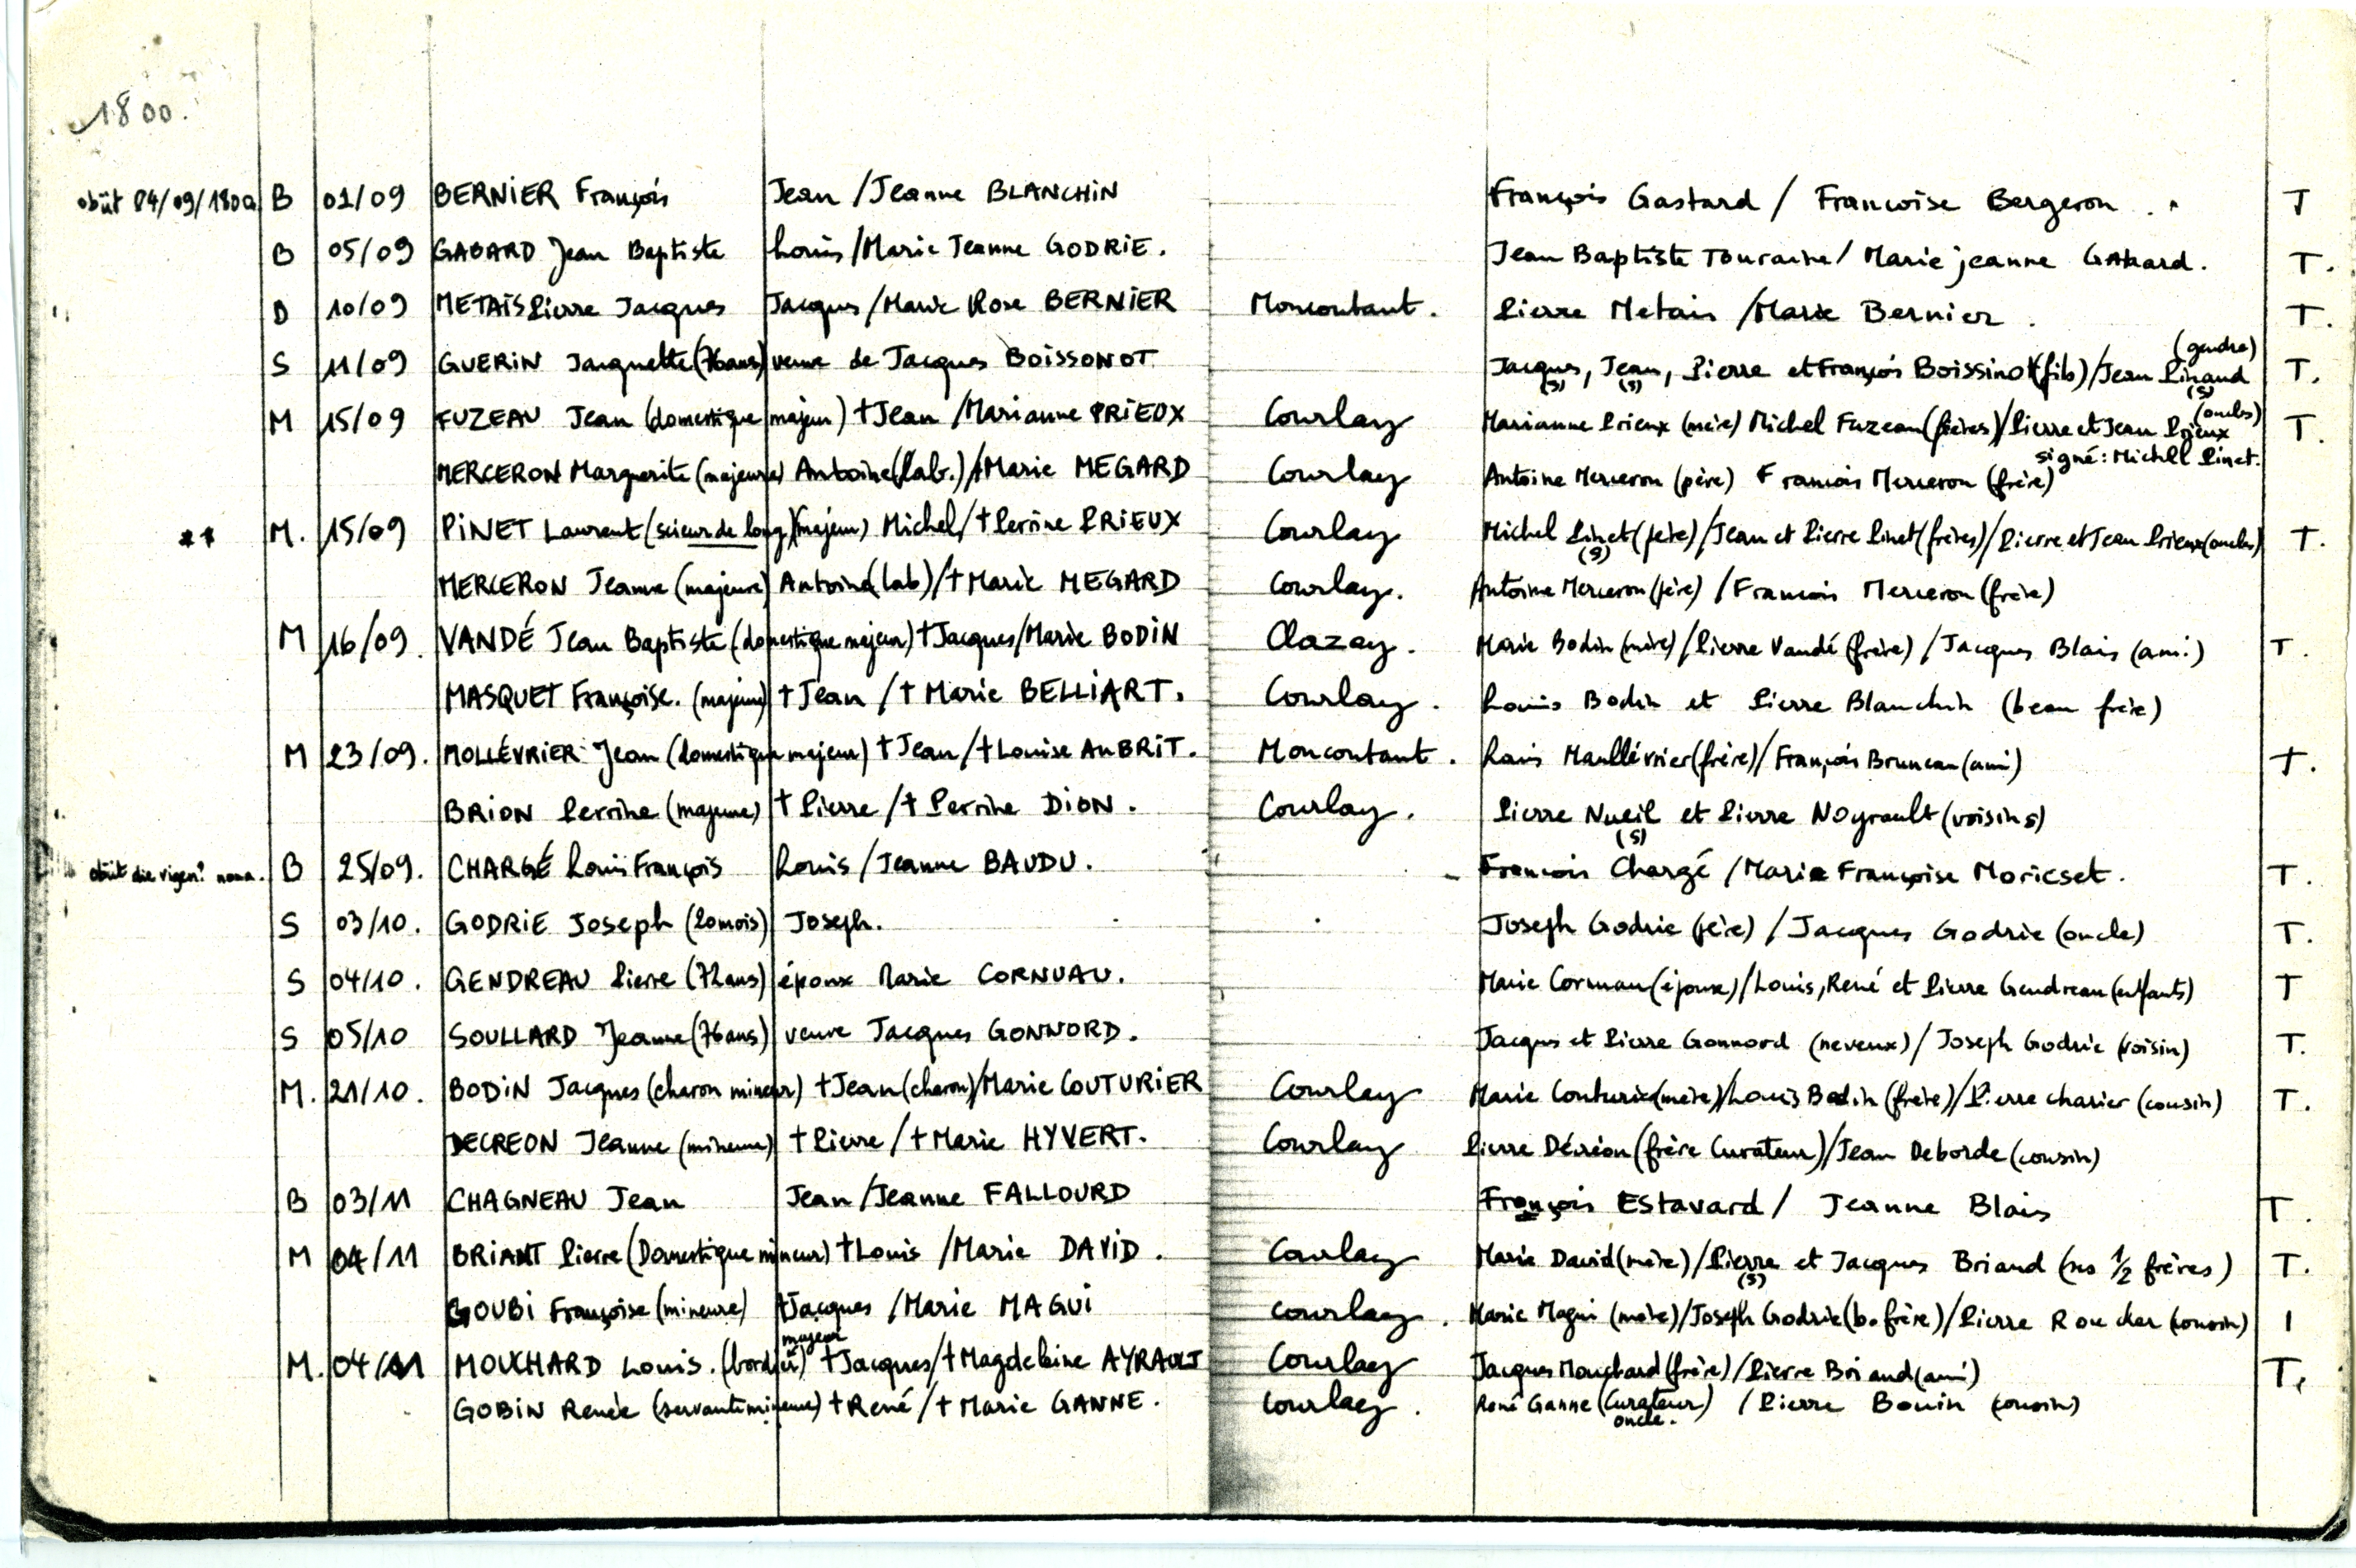 1800.
obiit 04/09/1800 B 01/09 BERNIER François Jean / Jeanne BLANCHIN François Gastard / Francoise Bergeron . T
B 05/09 GABARD Jean Baptiste Louis / Marie Jeanne GODRIE. Jean Baptiste Touraine / Marie jeanne Gabard. T.
B 10/09 METAIS Pierre Jacques Jacques / Marie Rose BERNIER Moncoutant. Pierre Metais / Marie Bernier. T.
(gendre)
S 11/09 GUERIN Jacquette (76ans) veuve de Jacques BOISSONOT Jacques, Jean, Pierre et François Boissinot (fils) / Jean Pinaud T.
(S) (S) (S)
(oncles)
M 15/09 FUZEAU Jean (domestique majeur) †Jean / Marianne PRIEUX Courlay Marianne Prieux (mère) Michel Fuzeau (frères) / Pierre et Jean Prieux T.
signé: Michell Pinet.
MERCERON Marguerite (majeure) Antoine (lab.) / †Marie MEGARD Courlay Antoine Merceron (père) Francois Merceron (frère)
** M. 15/09 PINET Laurent (scieur de long) (majeur) Michel / †Perrine PRIEUX Courlay Michel Pinet (père) / Jean et Pierre Pinet (frères) / Pierre et Jean Prieux (oncles) T.
(S)
MERCERON Jeanne (majeure) Antoine (lab) / †Marie MEGARD Courlay. Antoine Merceron (père) / Francois Merceron (frère)
M 16/09. VANDÉ Jean Baptiste (domestique majeur) †Jacques / Marie BODIN Clazay. Marie Bodin (mère) / Pierre Vandé (frère) / Jacques Blais (ami) T.
MASQUET Françoise. (majeure) †Jean / †Marie BELLIART. Courlay. Louis Bodin et Pierre Blanchin (beau frère)
M 23/09. MOLLÉVRIER Jean (domestique majeur) †Jean / †Louise AUBRIT. Moncoutant. Louis Maullévrier (frère) / François Bruneau (ami) T.
BRION Perrine (majeure) †Pierre / †Perrine DION. Courlay. Pierre Nueil et Pierre Noyrault (voisins)
(S)
obiit die nona. B 25/09. CHARGÉ Louis François Louis / Jeanne BAUDU. Francois Chargé / Marie Françoise Moricset. T.
S 03/10. GODRIE Joseph (20mois) Joseph. Joseph Godrie (père) / Jacques Godrie (oncle) T.
S 04/10. GENDREAU Pierre (72ans) époux Marie CORNUAU. Marie Cornuau (épouse) / Louis, René et Pierre Gendreau (enfants) T
S 05/10 SOULLARD Jeanne (76ans) veuve Jacques GONNORD. Jacques et Pierre Gonnord (neveux) / Joseph Godrie (voisin) T.
M. 21/10. BODIN Jacques (charon mineur) †Jean (charon) / Marie COUTURIER Courlay Marie Couturier (mère) / Louis Bodin (frère) / Pierre charier (cousin) T.
DECREON Jeanne (mineure) †Pierre / †Marie HYVERT. Courlay Pierre Décréon (frère Curateur) / Jean Deborde (cousin)
B 03/11 CHAGNEAU Jean Jean / Jeanne FALLOURD François Estavard / Jeanne Blais T.
M 04/11 BRIANT Pierre (Domestique mineur) †Louis / Marie DAVID. Courlay Marie David (mère) / Pierre et Jacques Briand (ses 1/2 frères) T.
(S)
GOUBI Françoise (mineure) †Jacques / Marie MAGUI Courlay. Marie Magui (mère) / Joseph Godrie (b. frère) / Pierre Roucher (cousin) T
majeur
M. 04/11 MOUCHARD Louis. (bordier) †Jacques / †Magdeleine AYRAULT Courlay Jacques Mouchard (frère) / Pierre Briand (ami) T.
GOBIN Renée (servante mineure) †René / †Marie GANNE. Courlay. René Ganne (Curateur) / Pierre Bouin (cousin)
oncle.